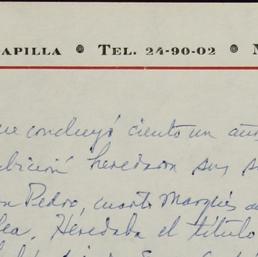 APILLA • TEL. 24-90-02 •
ue concluyó ciento un añ
bición heredaron sus
n Pedro, cuarto Marqués
ea. Heredaba el título